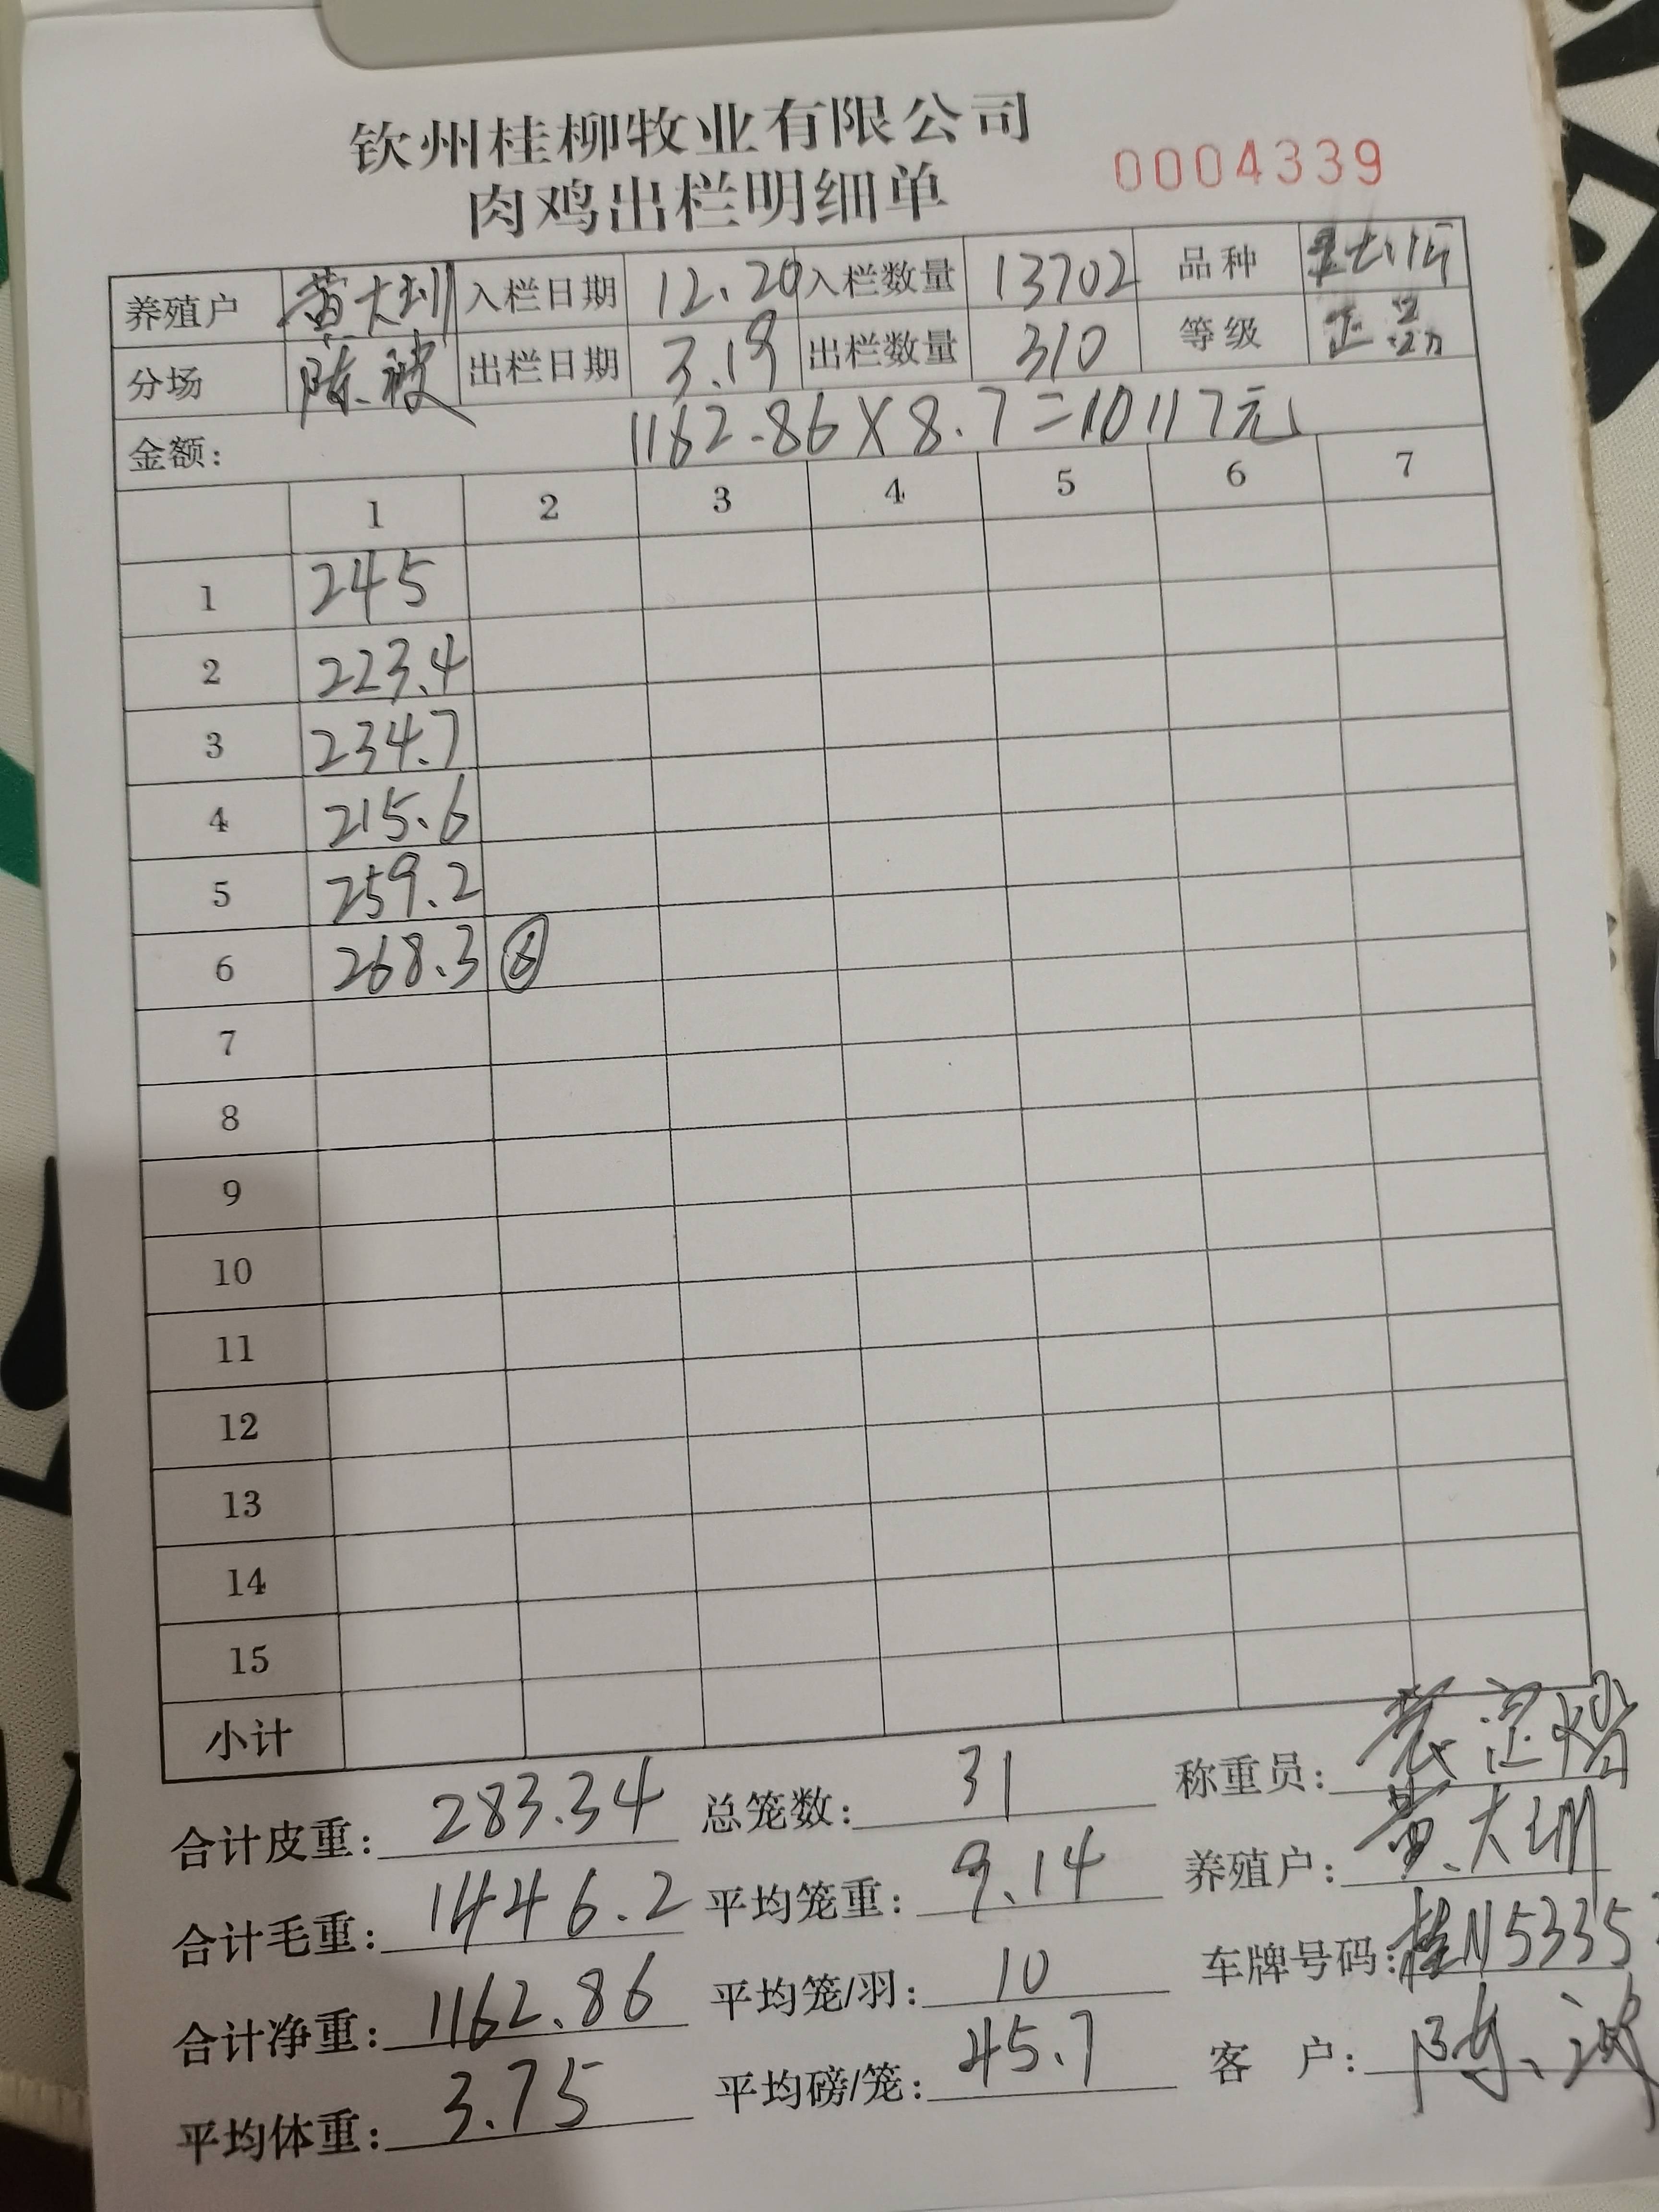 钦州桂柳牧业有限公司
肉鸡出栏明细单
0004339
养殖户 黄大圳 入栏日期 12.20 入栏数量 13702 品种
分场 陈波 出栏日期 3.19 出栏数量 310 等级 正品
金额: 1162.86×8.7=10117元
1 2 3 4 5 6 7
1 245
2 223.4
3 234.7
4 215.6
5 259.2
6 268.3 ⑥
7
8
9
10
11
12
13
14
15
小计
合计皮重: 283.34 总笼数: 31 称重员:
合计毛重: 1446.2 平均笼重: 9.14 养殖户: 黄大圳
合计净重: 1162.86 平均笼/羽: 10 车牌号码: 桂N5335
平均体重: 3.75 平均磅/笼: 45.7 客 户: 陈波